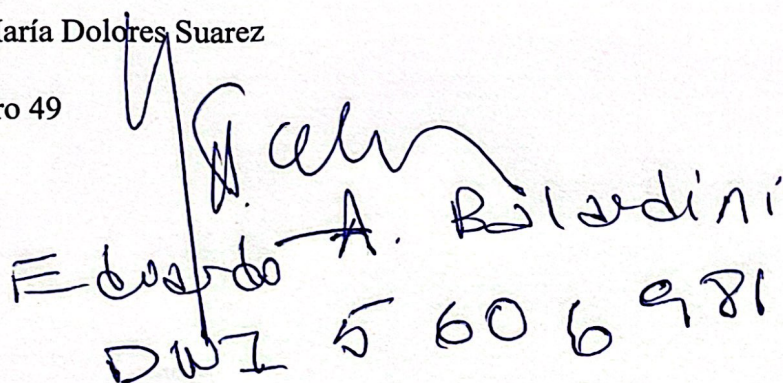 aría Dolores Suarez
ro 49
Eduardo A. Balardini
DNI 5 606 981